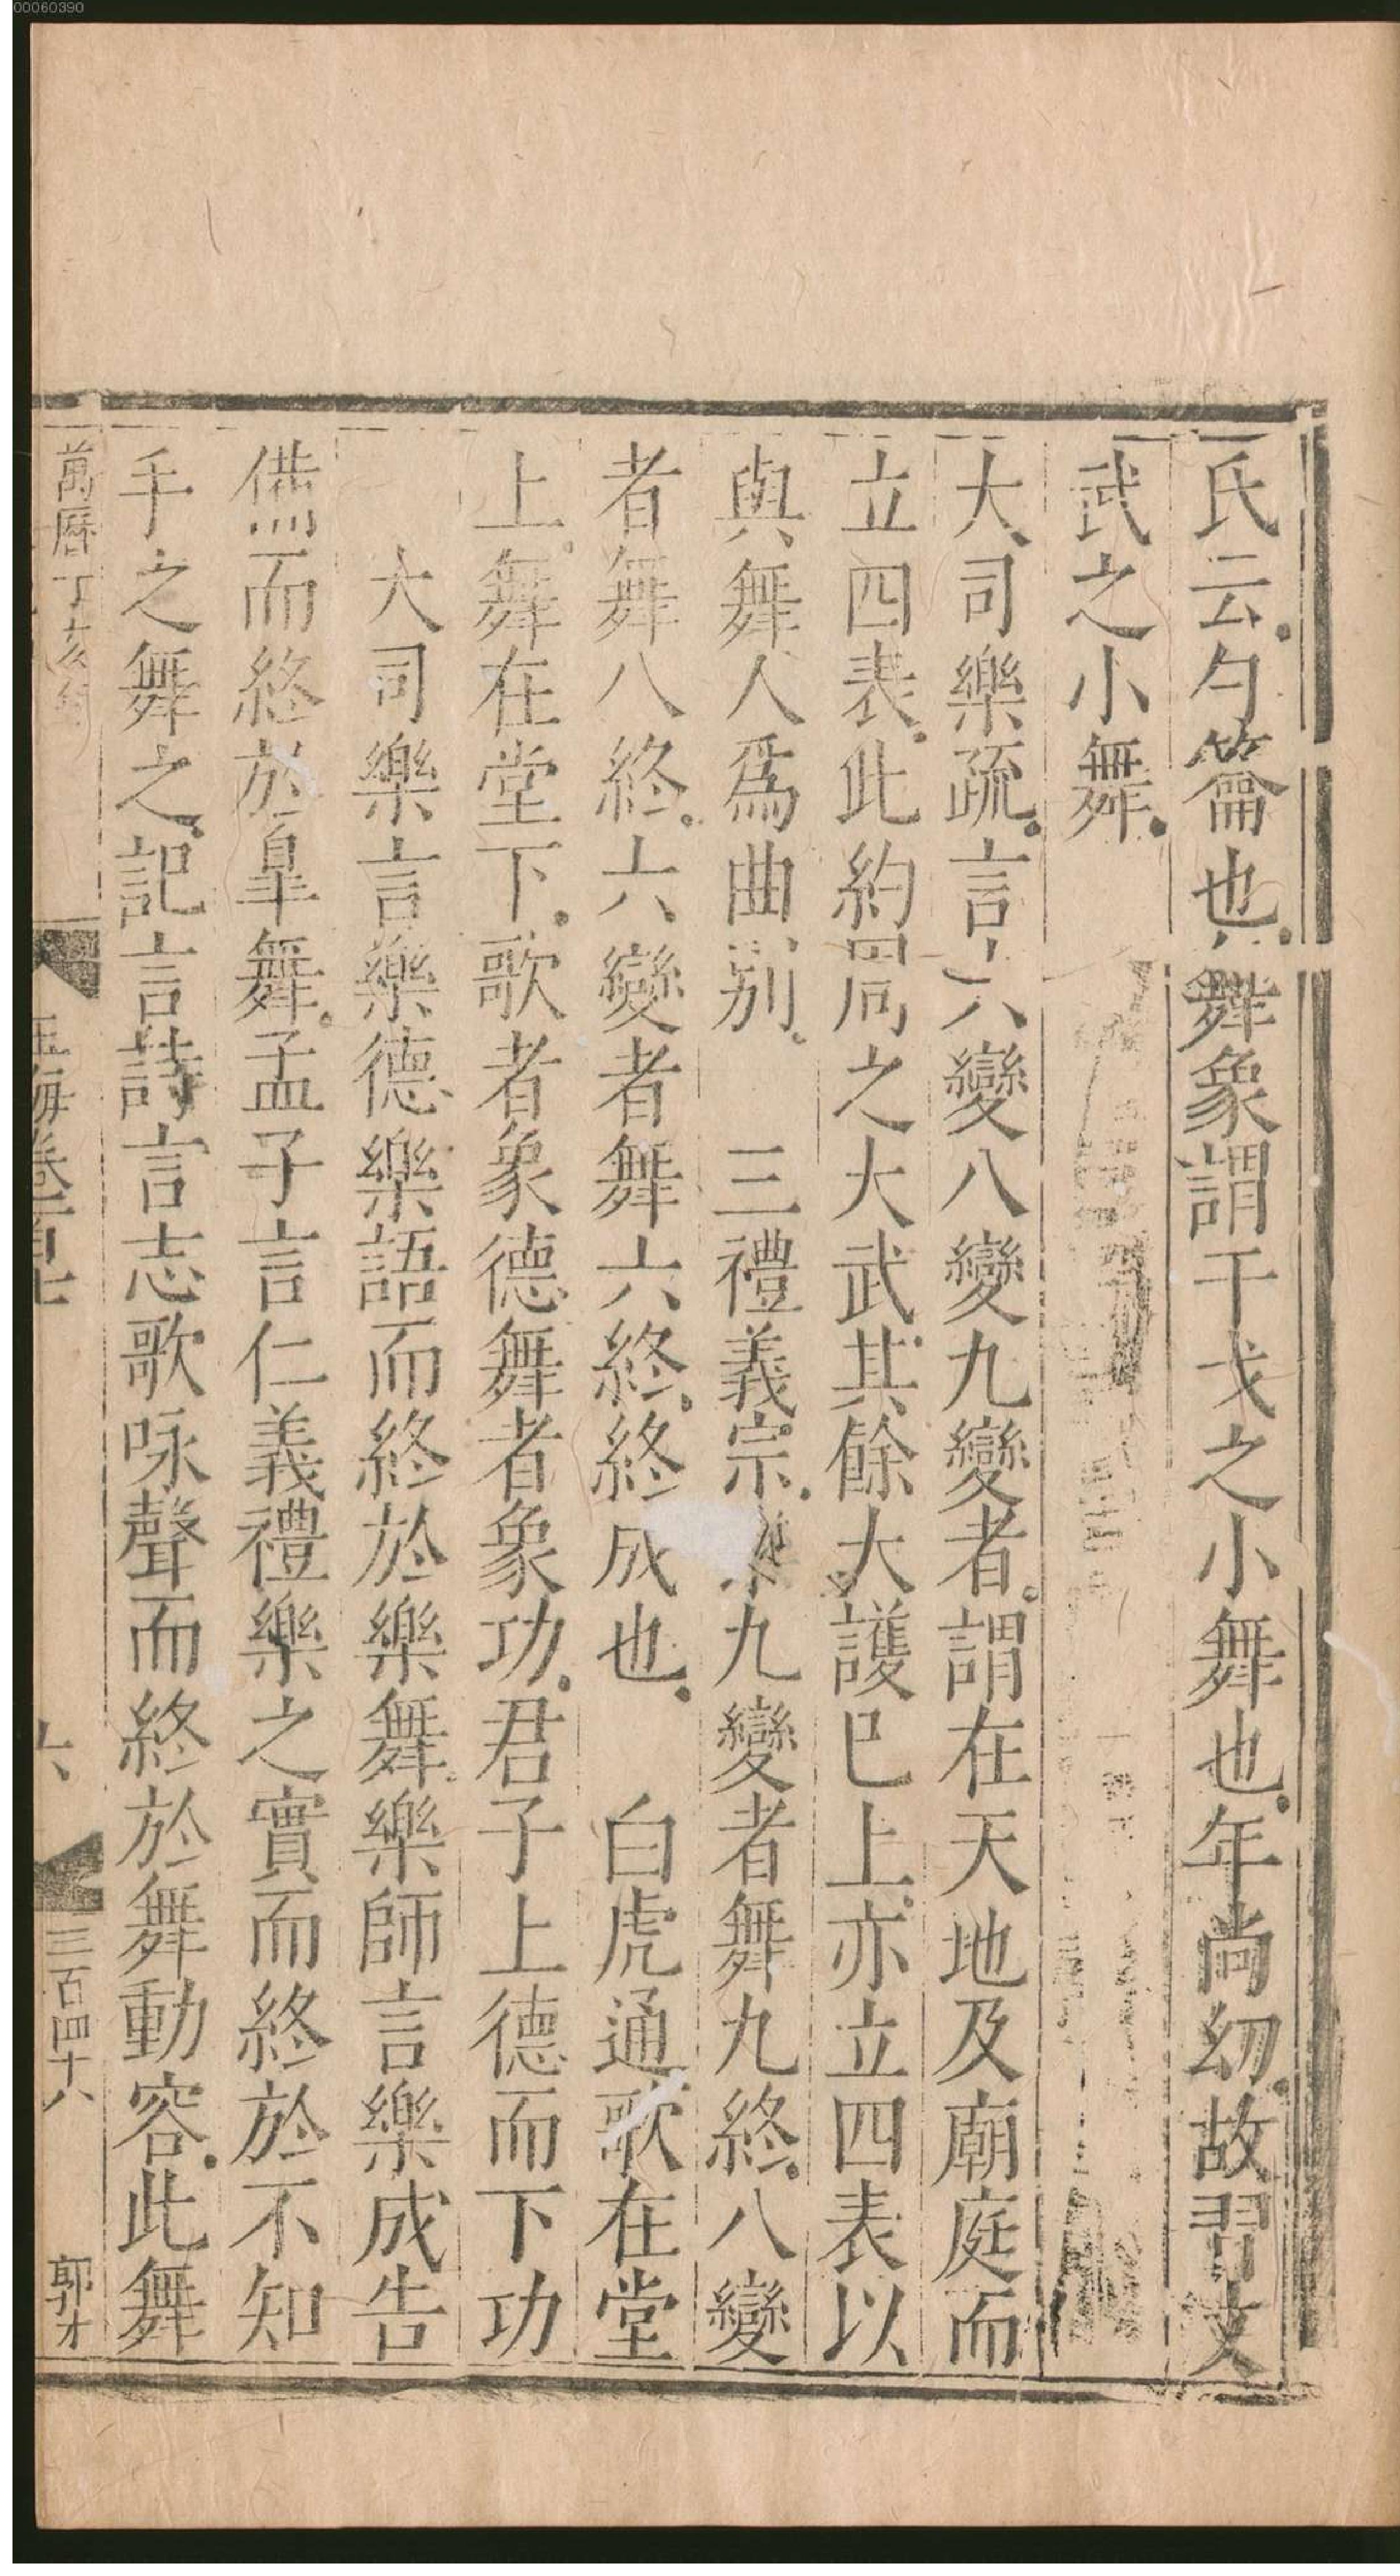 00060390
氏云勺籥也舞象謂干戈之小舞也年尚幼故習文
武之小舞
大司樂疏言六變八變九變者謂在天地及廟庭而
立四表此約周之大武其餘大護巳上亦立四表以
與舞人爲曲別　三禮義宗　九變者舞九終八變
者舞八終六變者舞六終終成也　白虎通歌在堂
上舞在堂下歌者象德舞者象功君子上德而下功
大司樂言樂德樂語而終於樂舞樂師言樂成告
備而終於臯舞孟子言仁義禮樂之實而終於不知
手之舞之記言詩言志歌咏聲而終於舞動容此舞
萬曆丁亥　玉海卷一百七　六　三百四十八　郭才